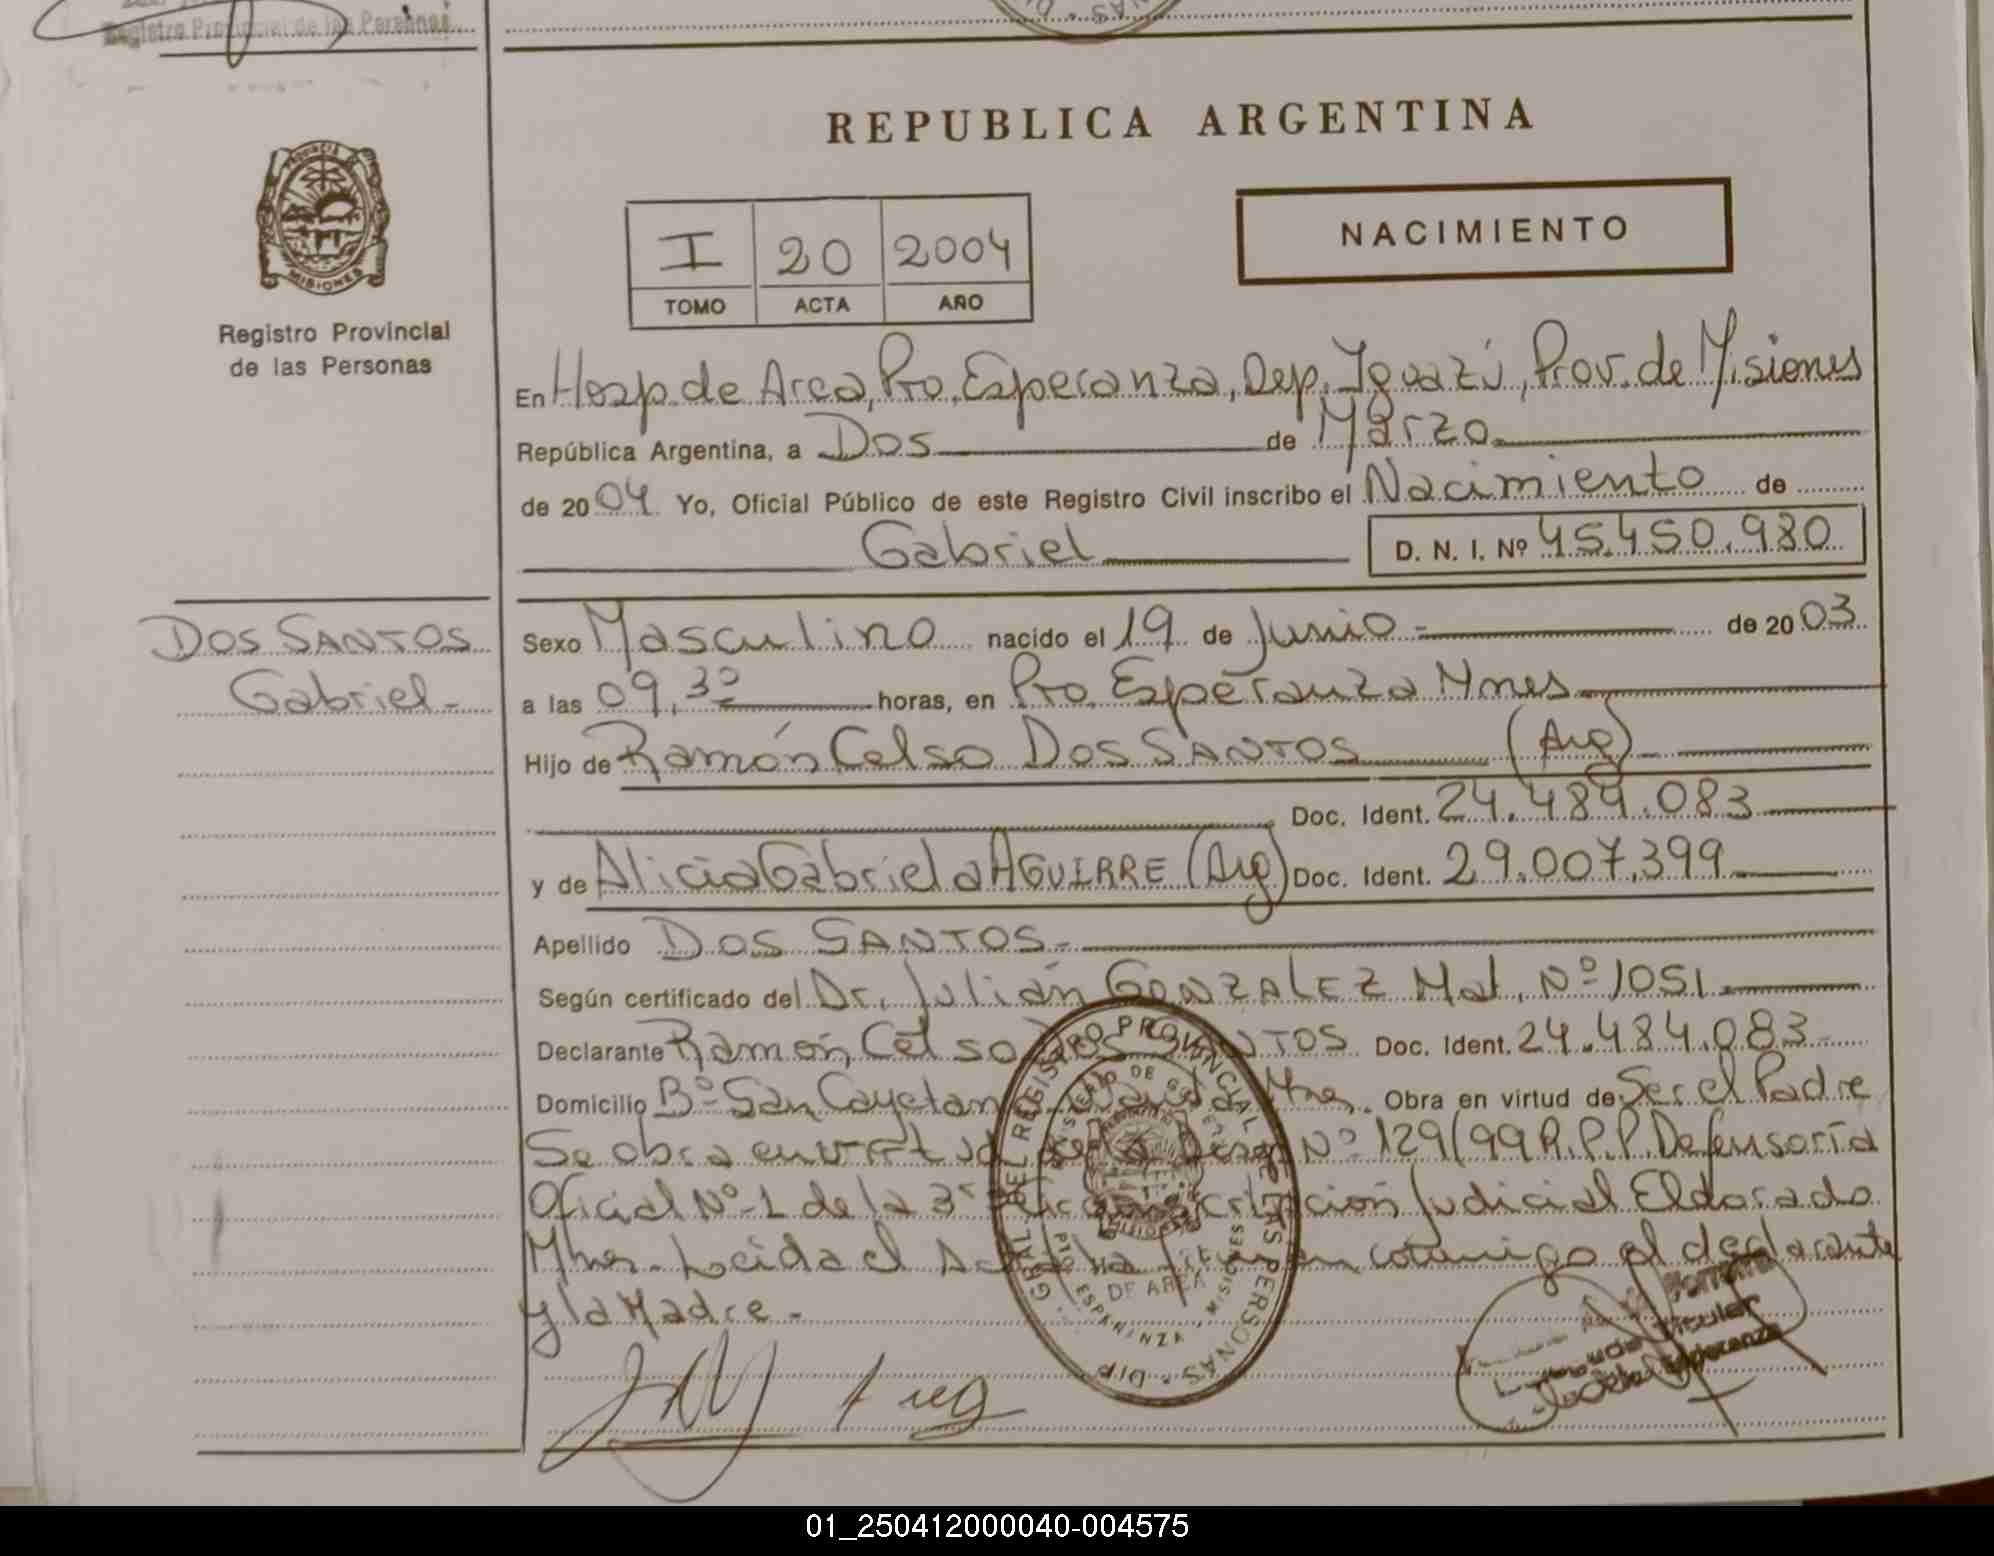 Registro Provincial de las Personas
REPUBLICA ARGENTINA
PROVINCIA DE
MISIONES
Registro Provincial
de las Personas
I 20 2004
TOMO ACTA AÑO
NACIMIENTO
En Hosp. de Area, Pto. Esperanza, Dep. Iguazú, Prov. de Misiones
República Argentina, a Dos de Marzo
de 2004 Yo, Oficial Público de este Registro Civil inscribo el Nacimiento de
Gabriel D. N. I. Nº 45.450.980
DOS SANTOS
Gabriel-
Sexo Masculino nacido el 19 de Junio - de 2003
a las 09,30 horas, en Pto. Esperanza Mnes
Hijo de Ramón Celso DOS SANTOS (Arg)
Doc. Ident. 24.484.083
y de Alicia Gabriela AGUIRRE (Arg) Doc. Ident. 29.007.399
Apellido DOS SANTOS-
Según certificado del Dr. Julián GONZALEZ Mat. Nº 1051
Declarante Ramón Celso DOS SANTOS Doc. Ident. 24.484.083
Domicilio Bº San Cayetano Wanda Mnes. Obra en virtud de Ser el Padre
Se obra en virtud de la Disp. Nº 129/99 R.P.P. Defensoría
Oficial Nº 1 de la 3º Circunscripción Judicial Eldorado
Mnes. Leida el Acta la firman conmigo el declarante
y la Madre.-
DIP. GRAL DEL REGISTRO PROVINCIAL DE LAS PERSONAS
MINISTERIO DE GOBIERNO
MISIONES
DE AREA
PTO ESPERANZA - MISIONES
Titular
Esperanza
01_250412000040-004575